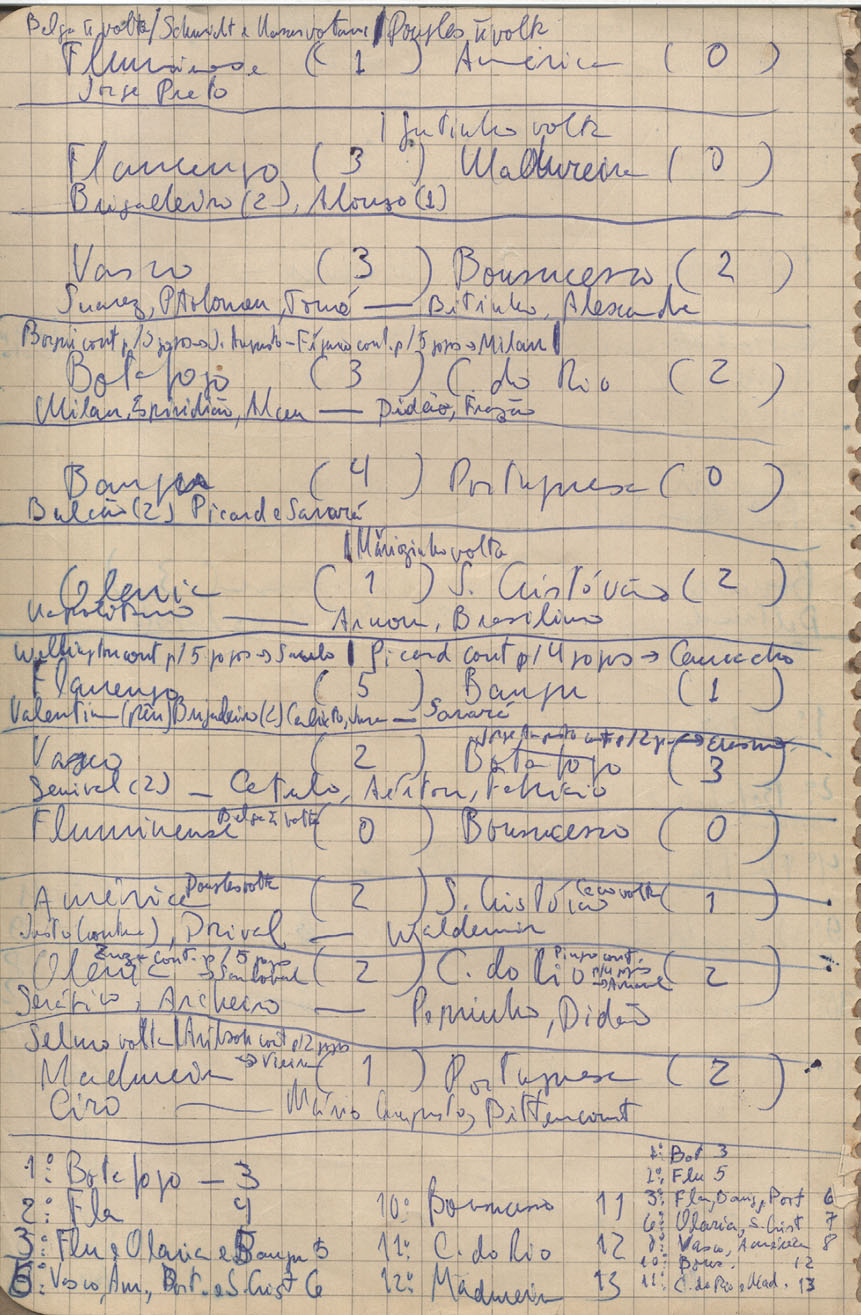 Belga ñ volta/Schmidt e volta | Pomples ñ volta
Fluminense ( 1 ) América ( 0 )
Jorge Preto
| Gutinho volta
Flamengo ( 3 ) Madureira ( 0 )
Brigadeiro (2), Alonzo (1)
Vasco ( 3 ) Bonsucesso ( 2 )
Suarez, Ptolomeu, Tomé — Bitinho, Alexandre
cont p/5 jogos → J. Augusto - Fígaro cont. p/5 jogos → Milan |
Botafogo ( 3 ) C. do Rio ( 2 )
Milan, Espiridião, Alceu — Didão, Frazão
Bangu ( 4 ) Portuguesa ( 0 )
Balcão (2) Picard e Sarará
| Máriozinho volta
Olaria ( 1 ) S. Cristóvão ( 2 )
Napolitano — Arnon, Brasilino
Wellington cont p/5 jogos → | Picard cont p/4 jogos → Camacho
Flamengo ( 5 ) Bangu ( 1 )
Valentim (pên) Brigadeiro (2) Calixto, — Sarará
Jorge Augusto cont p/2 jogos → Erasmo.
Vasco ( 2 ) Botafogo ( 3 )
Genival (2) — Cetulo, Aériton, Patrício
Fluminense Belga ñ volta ( 0 ) Bonsucesso ( 0 )
América Pomples volta ( 2 ) S. Cristóvão volta ( 1 )
Justo (contra), Dorival — Waldemir
Olaria cont. p/5 jogos → Sandoval ( 2 ) C. do Rio Pingo cont. p/4 jogos ( 2 )
Seráfico, Archeiro — Pepinho, Didão
Selmo volta | Arilson cont p/2 jogos → Vieira
Madureira ( 1 ) Portuguesa ( 2 )
Ciro — Mário Augusto, Bittencourt
1º: Botafogo — 3
2º: Fla 4
3º: Flu e Olaria e Bangu 5
6º: Vasco, Am., Port. e S. Crist 6
10º: Bonsucesso 11
11º: C. do Rio 12
12º: Madureira 13
1º: Bot 3
2º: Flu 5
3º: Fla, Bang, Port 6
6º: Olaria, S. Crist 7
8º: Vasco, América 8
10º: Bons. 12
11º: C. do Rio e Mad. 13